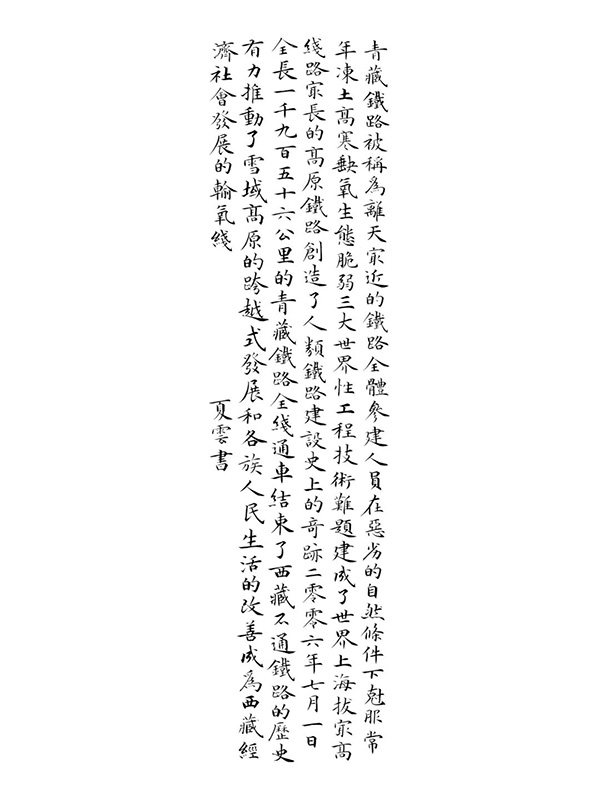 青藏鐵路被稱為離天㝡近的鐵路全體參建人員在惡劣的自然條件下尅服常
年凍土高寒缺氧生態脆弱三大世界性工程技術難題建成了世界上海拔㝡高
綫路㝡長的高原鐵路創造了人類鐵路建設史上的奇跡二零零六年七月一日
全長一千九百五十六公里的青藏鐵路全綫通車結束了西藏不通鐵路的歷史
有力推動了雪域高原的跨越式發展和各族人民生活的改善成為西藏經
濟社會發展的輸氧綫
夏雲書